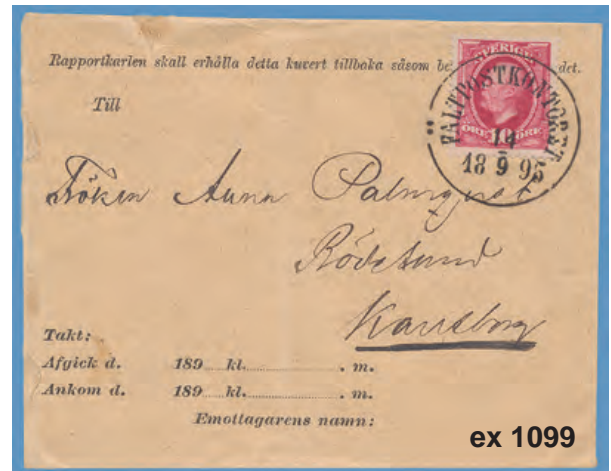 Rapportkarlen skall erhålla detta kuvert tillbaka såsom be det.
SVERIGE
ÖRE ÖRE
FÄLTPOSTKONTORET
14
18 9 95
Till
Fröken Anna Palmqvist
Rödesund
Karlsborg
Takt:
Afgick d. 189 kl. . m.
Ankom d. 189 kl. . m.
Emottagarens namn:
ex 1099